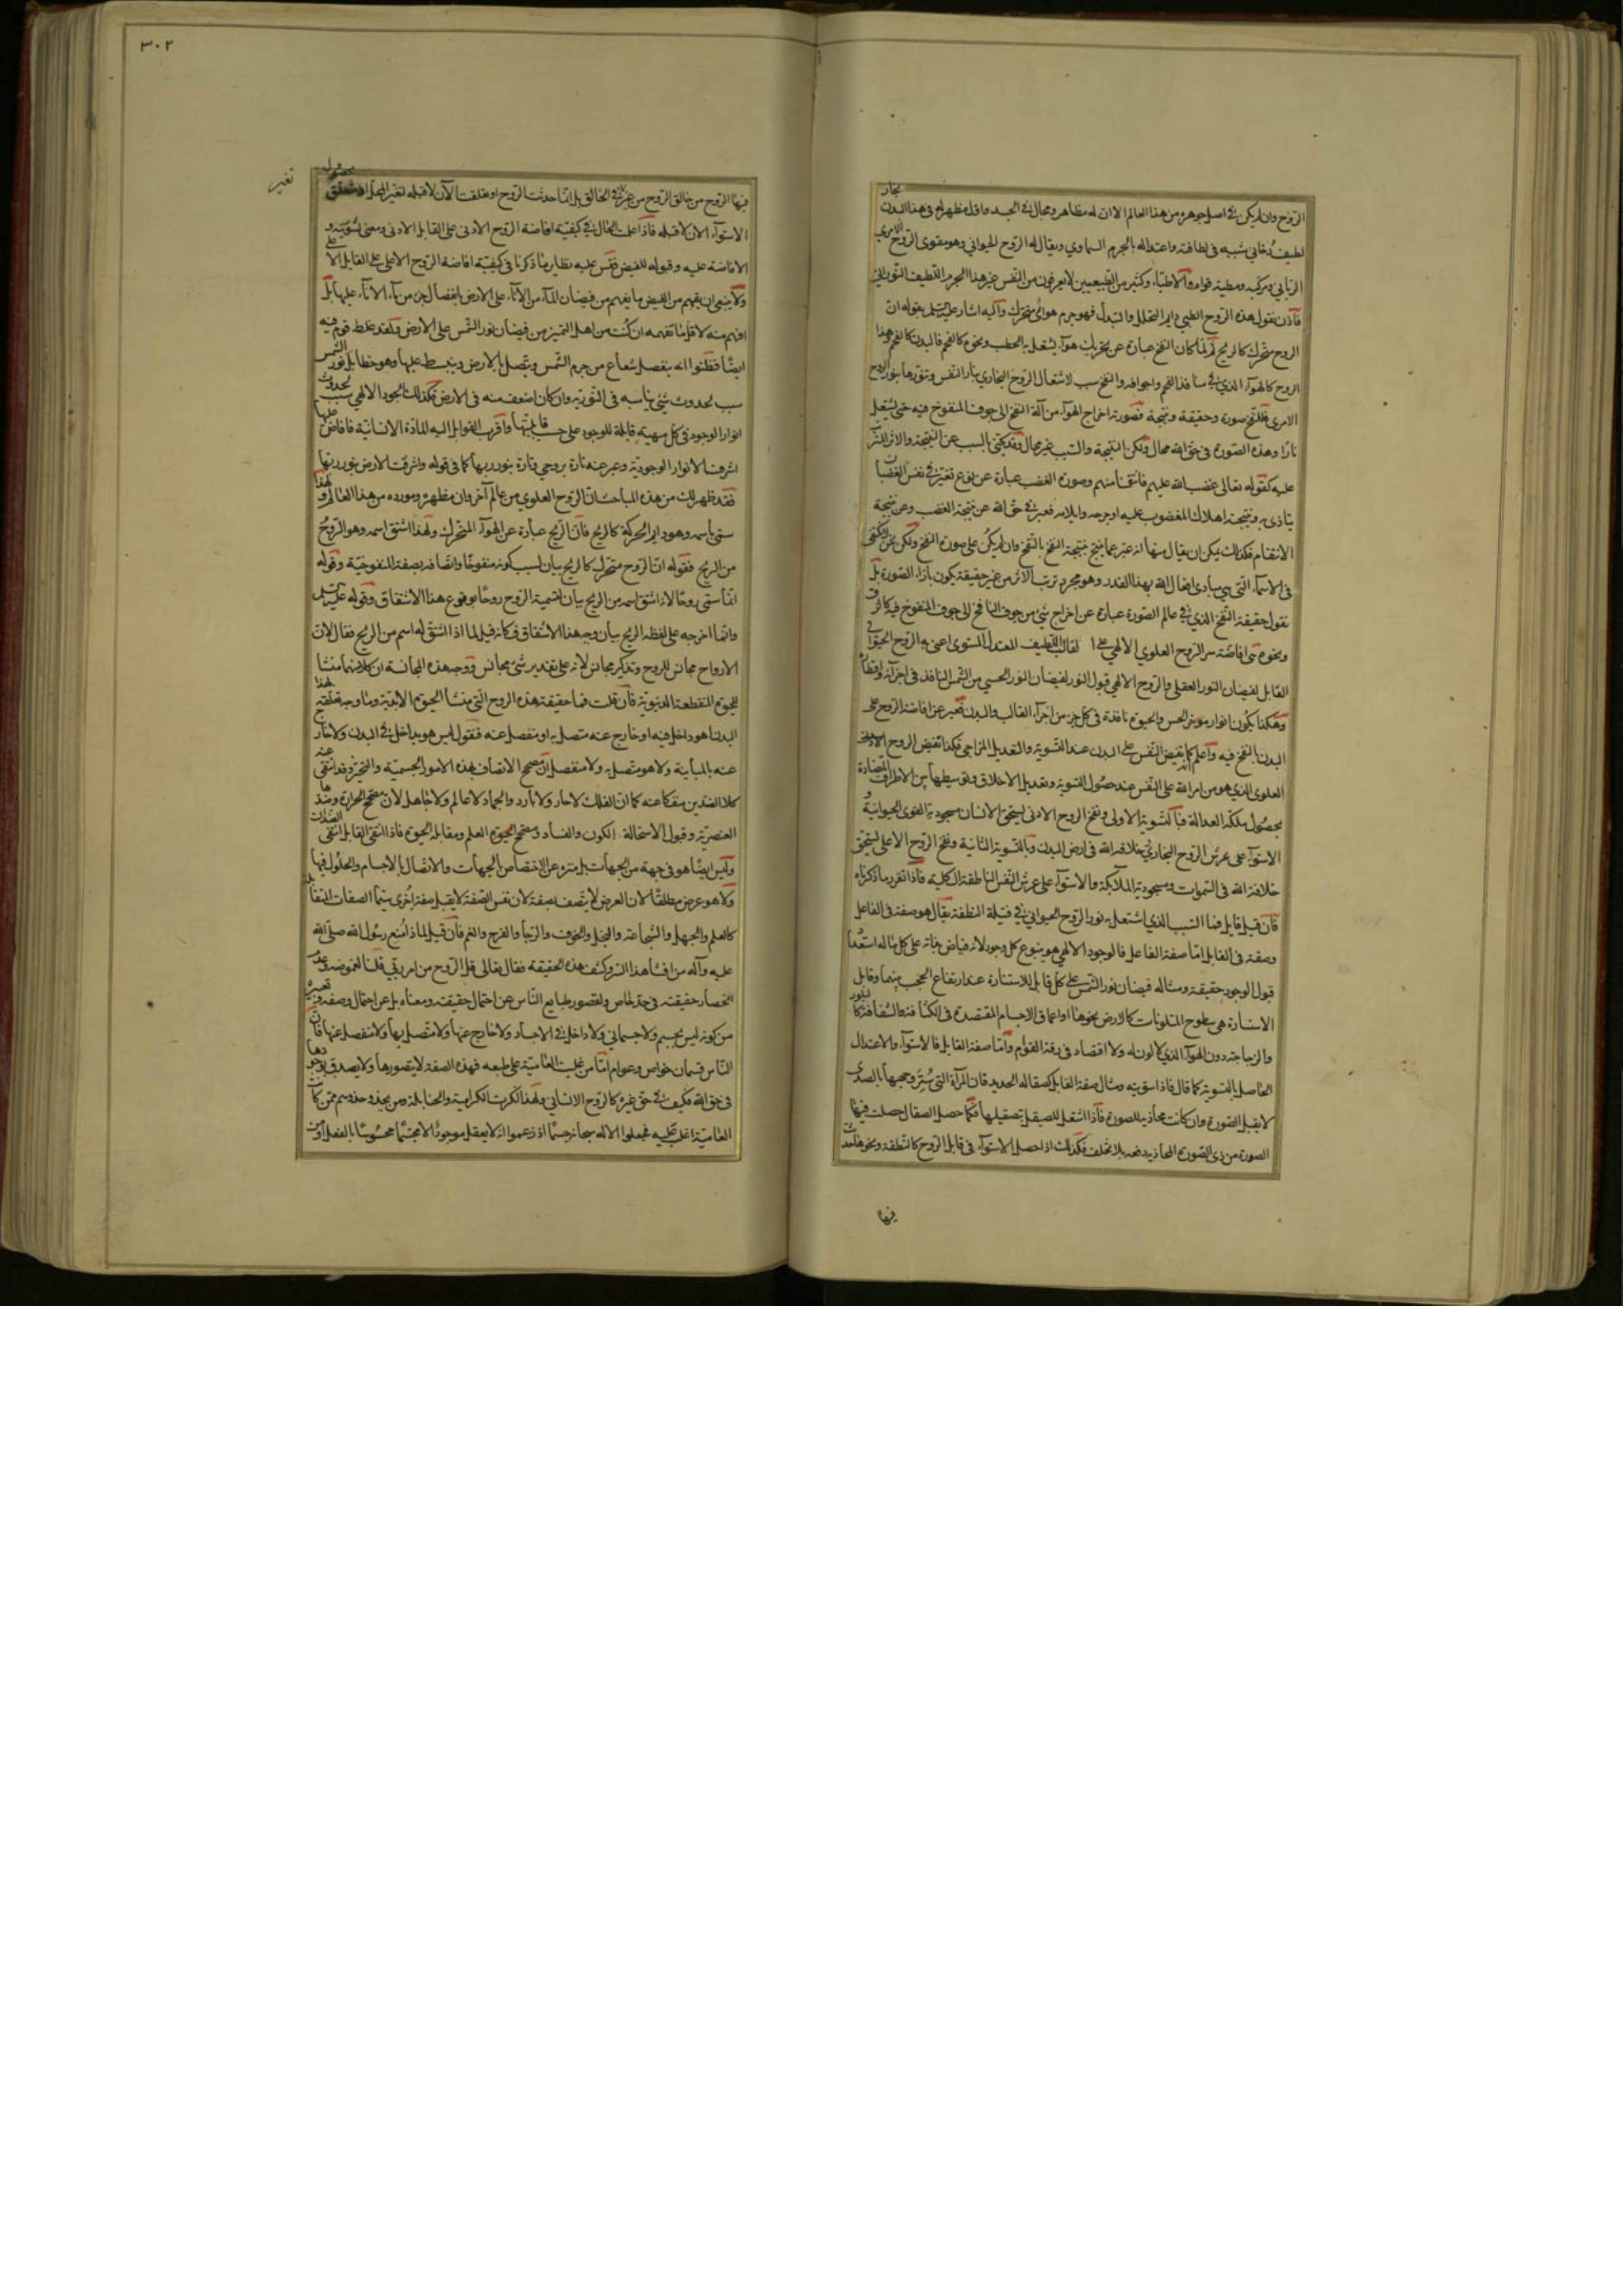 ٣٠٢
الروح وان لم يكن في اصل جوهره من هذا العالم الا ان له مظاهر ومجال في الجسد واول مظهر له في هذا البدن بخار
لطيف دخاني شبيه في لطافته واعتداله بالجرم السماوي ويقال له الروح الحيواني وهو مقوى الروح الامري
الرباني ومركبه ومطية قواه والاطباء وكثير من الطبيعيين لا يعرفون من النفس غير هذا الجرم اللطيف النوراني
فاذن نقول هذه الروح الطبي دايم التحلل والتبدل فهو جرم هوائي متحرك واليه اشار عليه السلم بقوله ان
الروح متحرك كالريح ثم لما كان النفخ عبارة عن تحريك هواء يشتعل به الحطب ونحوه كالفحم فالبدن كالفحم وهذا
الروح كالهواء الذي في منافذ الفحم واجوافه والنفخ سبب لاشتعال الروح البخاري بنار النفس وتنورها بنور الروح
الامري فللنفخ صورة وحقيقة ونتيجة فصورته اخراج الهواء من آلة النفخ الى جوف المنفوخ فيه حتى يشتعل
نارا وهذه الصورة في حق الله محال ولكن النتيجة والسبب غير محال وقد يكنى بالسبب عن النتيجة والاثر المترتب
عليه كقوله تعالى غضب الله عليهم فانتقمنا منهم وصورة الغضب عبارة عن نوع تغير في نفس الغضبان
يتاذى به ونتيجته اهلاك المغضوب عليه او جرحه وايلامه فعبر في حق الله عن نتيجة الغضب وعن نتيجة
الانتقام فكذلك يمكن ان يقال ههنا انه عبر عما ينتج نتيجة النفخ بالنفخ وان لم يكن على صورة النفخ ولكن نحن لا نكتفي
في الاسماء التي هي مبادى افعال الله بهذا القدر وهو مجرد ترتب الاثر من غير حقيقة يكون بازاء الصورة بل
نقول حقيقة النفخ الذي في عالم الصورة عبارة عن اخراج شئ من جوف النافخ الى جوف المنفوخ فيه كالزق
ونحوه هي افاضة سر الروح العلوي الالهي على القالب اللطيف المعتدل المستوى اعني به الروح الحيواني
القابل لفيضان النور العقلي والروح الالهي قبول النور لفيضان النور الحسي من الشمس النافذ في اجزائه واقطاره
وهكذا يكون انوار موثر الحس والحيوة نافذة في كل جزء من اجزاء القالب والبدن فعبر عن افاضة الروح على
البدن بالنفخ فيه واعلم انه كما تفيض النفس على البدن عند التسوية والتعديل المزاجي فكذا تفيض الروح الالهي
العلوى الذي هو من امر الله على النفس عند حصول التسوية وتعديل الاخلاق وتوسيطها بين الاطراف المتضادة
بحصول ملكة العدالة فبالتسوية الاولى ونفخ الروح الادنى يستحق الانسان مسجودية القوى الحيوانية و
الاستواء على عرش الروح البخاري بخلافة الله في ارض البدن وبالتسوية الثانية ونفخ الروح الاعلى يستحق
خلافة الله في السموات ومسجودية الملائكة والاستواء على عرش النفس الناطقة الكلية فاذا تقرر ما ذكرناه
فان قيل قايل فما السبب الذي اشتعل به نور الروح الحيواني في فتيلة النطفة يقال هو صفة في الفاعل
وصفة في القابل اما صفة الفاعل فالوجود الالهي هو ينبوع كل وجود لانه فياض بذاته على كل ماله استعداد
قبول الوجود حقيقته ومثاله فيضان نور الشمس على كل قابل للاستنارة عند ارتفاع الحجب بينهما وقابل
الاستنارة هي سطوح المتلونات كالارض ونحوها او اعماق الاجسام المقتصدة في الكثافة والشفافة كالبلور
والزجاجة دون الهواء الذي لا لون له ولا اقتصاد في رقة القوام واما صفة القابل فالاستواء والاعتدال
الحاصل بالتسوية كما قال فاذا سويته ومثال صفة القابل كصقالة الحديد فان المرآة التي ستر وجهها بالصدى
لا يقبل الصورة وان كانت محاذية للصورة فاذا اشتغل الصيقل بتصقيلها فكما حصل الصقال حصلت فيها
الصورة من ذي الصورة المحاذية دفعة بلا تخلف فكذلك اذا حصل الاستواء في قابل الروح كالنطفة ونحوها حدث
فيها
فيها الروح من خالق الروح من غير تغير في الخالق بل انما حدثت الروح او تعلقت الآن لا قبله لتغير المحل
تغير
الاستواء الان لا قبله فاذا علمت الحال في كيفية افاضة الروح الادنى على القابل الادنى ومعنى تسويته و
الافاضة عليه وقبوله للفيض فقس عليه نظاير ما ذكرنا في كيفية افاضة الروح الاعلى على القابل الاعلى
ولا ينبغي ان يفهم من الفيض ما يفهم من فيضان الماء من الاناء على الارض بانفصال جزء من ماء الاناء عليها بل
افهم منه لا قل ما تفهمه ان كنت من اهل التميز من فيضان نور الشمس على الارض ولقد غلط قوم فيه
ايضا فظنوا انه ينفصل شعاع من جرم الشمس ويتصل بالارض وينبسط عليها وهو خطا بل نور الشمس
سبب لحدوث شئ يناسبه في النورية وان كان اضعف منه في الارض فكذلك الجود الالهي سبب لحدوث
انوار الوجود في كل مهية قابلة للوجود على حسب قابليتها واقرب القوابل اليه المادة الانسانية فافاض عليها
اشرف الانوار الوجودية وعبر عنه تارة بروحي وتارة بنور ربها كما في قوله واشرقت الارض بنور ربها
فقد ظهر لك من هذه المباحث ان الروح العلوي من عالم آخر وان مظهره ومورده من هذا العالم ولهذا
سمى باسمه وهو دايم الحركة كالريح فان الريح عبارة عن الهواء المتحرك ولهذا اشتق اسمه وهو الروح
من الريح فقوله ان الروح متحرك كالريح بيان لسبب كونه منفوخا واتصافه بصفة المنفوخية وقوله
انما سمى روحا لانه اشتق اسمه من الريح بيان لتسمية الروح روحا بوقوع هذا الاشتقاق وقوله عليه السلم
وانما اخرجه على لفظة الريح بيان وجه هذا الاشتقاق فكانه قيل لماذا اشتق له اسم من الريح فقال لان
الارواح مجانس للروح وتذكير مجانس لانه على تقدير شئ مجانس ووجه هذه المجانسة ان كلا منهما منشا
للحيوة المنقطعة الدنيوية فان قلت فما حقيقة هذه الروح التي منشا الحيوة الابدية وما وجه تعلقه بهذا
البدن اهو داخل فيه او خارج عنه متصل به او منفصل عنه فنقول ليس هو بداخل في البدن ولا خارج
عنه بالمباينة ولا هو متصل به ولا منفصل لان مصحح الاتصاف بهذه الامور الجسمية والتحيز وقد انتفى عنه
كلا الضدين منفكا عنه كما ان الفلك لا حار ولا بارد والجماد لا عالم ولا جاهل لان مصحح الحرارة وضدها
العنصرية وقبول الاستحالة الكون والفساد ومصحح العلم ومقابله الحيوة فاذا انتفى القابل انتفى الضدان
وليس ايضا هو في جهة من الجهات بل منزه عن الاختصاص بالجهات والاتصال بالاجسام والحلول فيها
ولا هو عرض مطلقا لان العرض لا يتصف بصفة لان نفس الصفة لا يقبل صفة اخرى سيما الصفات المتقابلة
كالعلم والجهل والشجاعة والبخل والخوف والرجا والفرح والغم فان قيل لماذا امنع رسول الله صلى الله
عليه وآله من افشا هذا السر وكشف هذه الحقيقة فقال تعالى قل الروح من امر ربي قلنا لغموضه وعدم
انحصار حقيقته في حد خاص ولقصور طبايع الناس عن احتمال حقيقته ومعناه بل عن احتمال وصفه وتعبيره
من كونه ليس بجسم ولا جسماني ولا داخل في الاجساد ولا خارج عنها ولا متصل بها ولا منفصل عنها فان
الناس قسمان خواص وعوام اما من غلبت العامية على طبعه فهذه الصفة لا يتصورها ولا يصدق بوجودها
في حق الله فكيف في حق غيره كالروح الانساني ولهذا انكرت الكرامية والحنابلة ومن يحذو حذوهم ممن كان
العامية اغلب عليه فجعلوا الاله سبحانه جسما اذ زعموا انه لا يعقل موجود الا مجسما محسوسا بالفعل او من